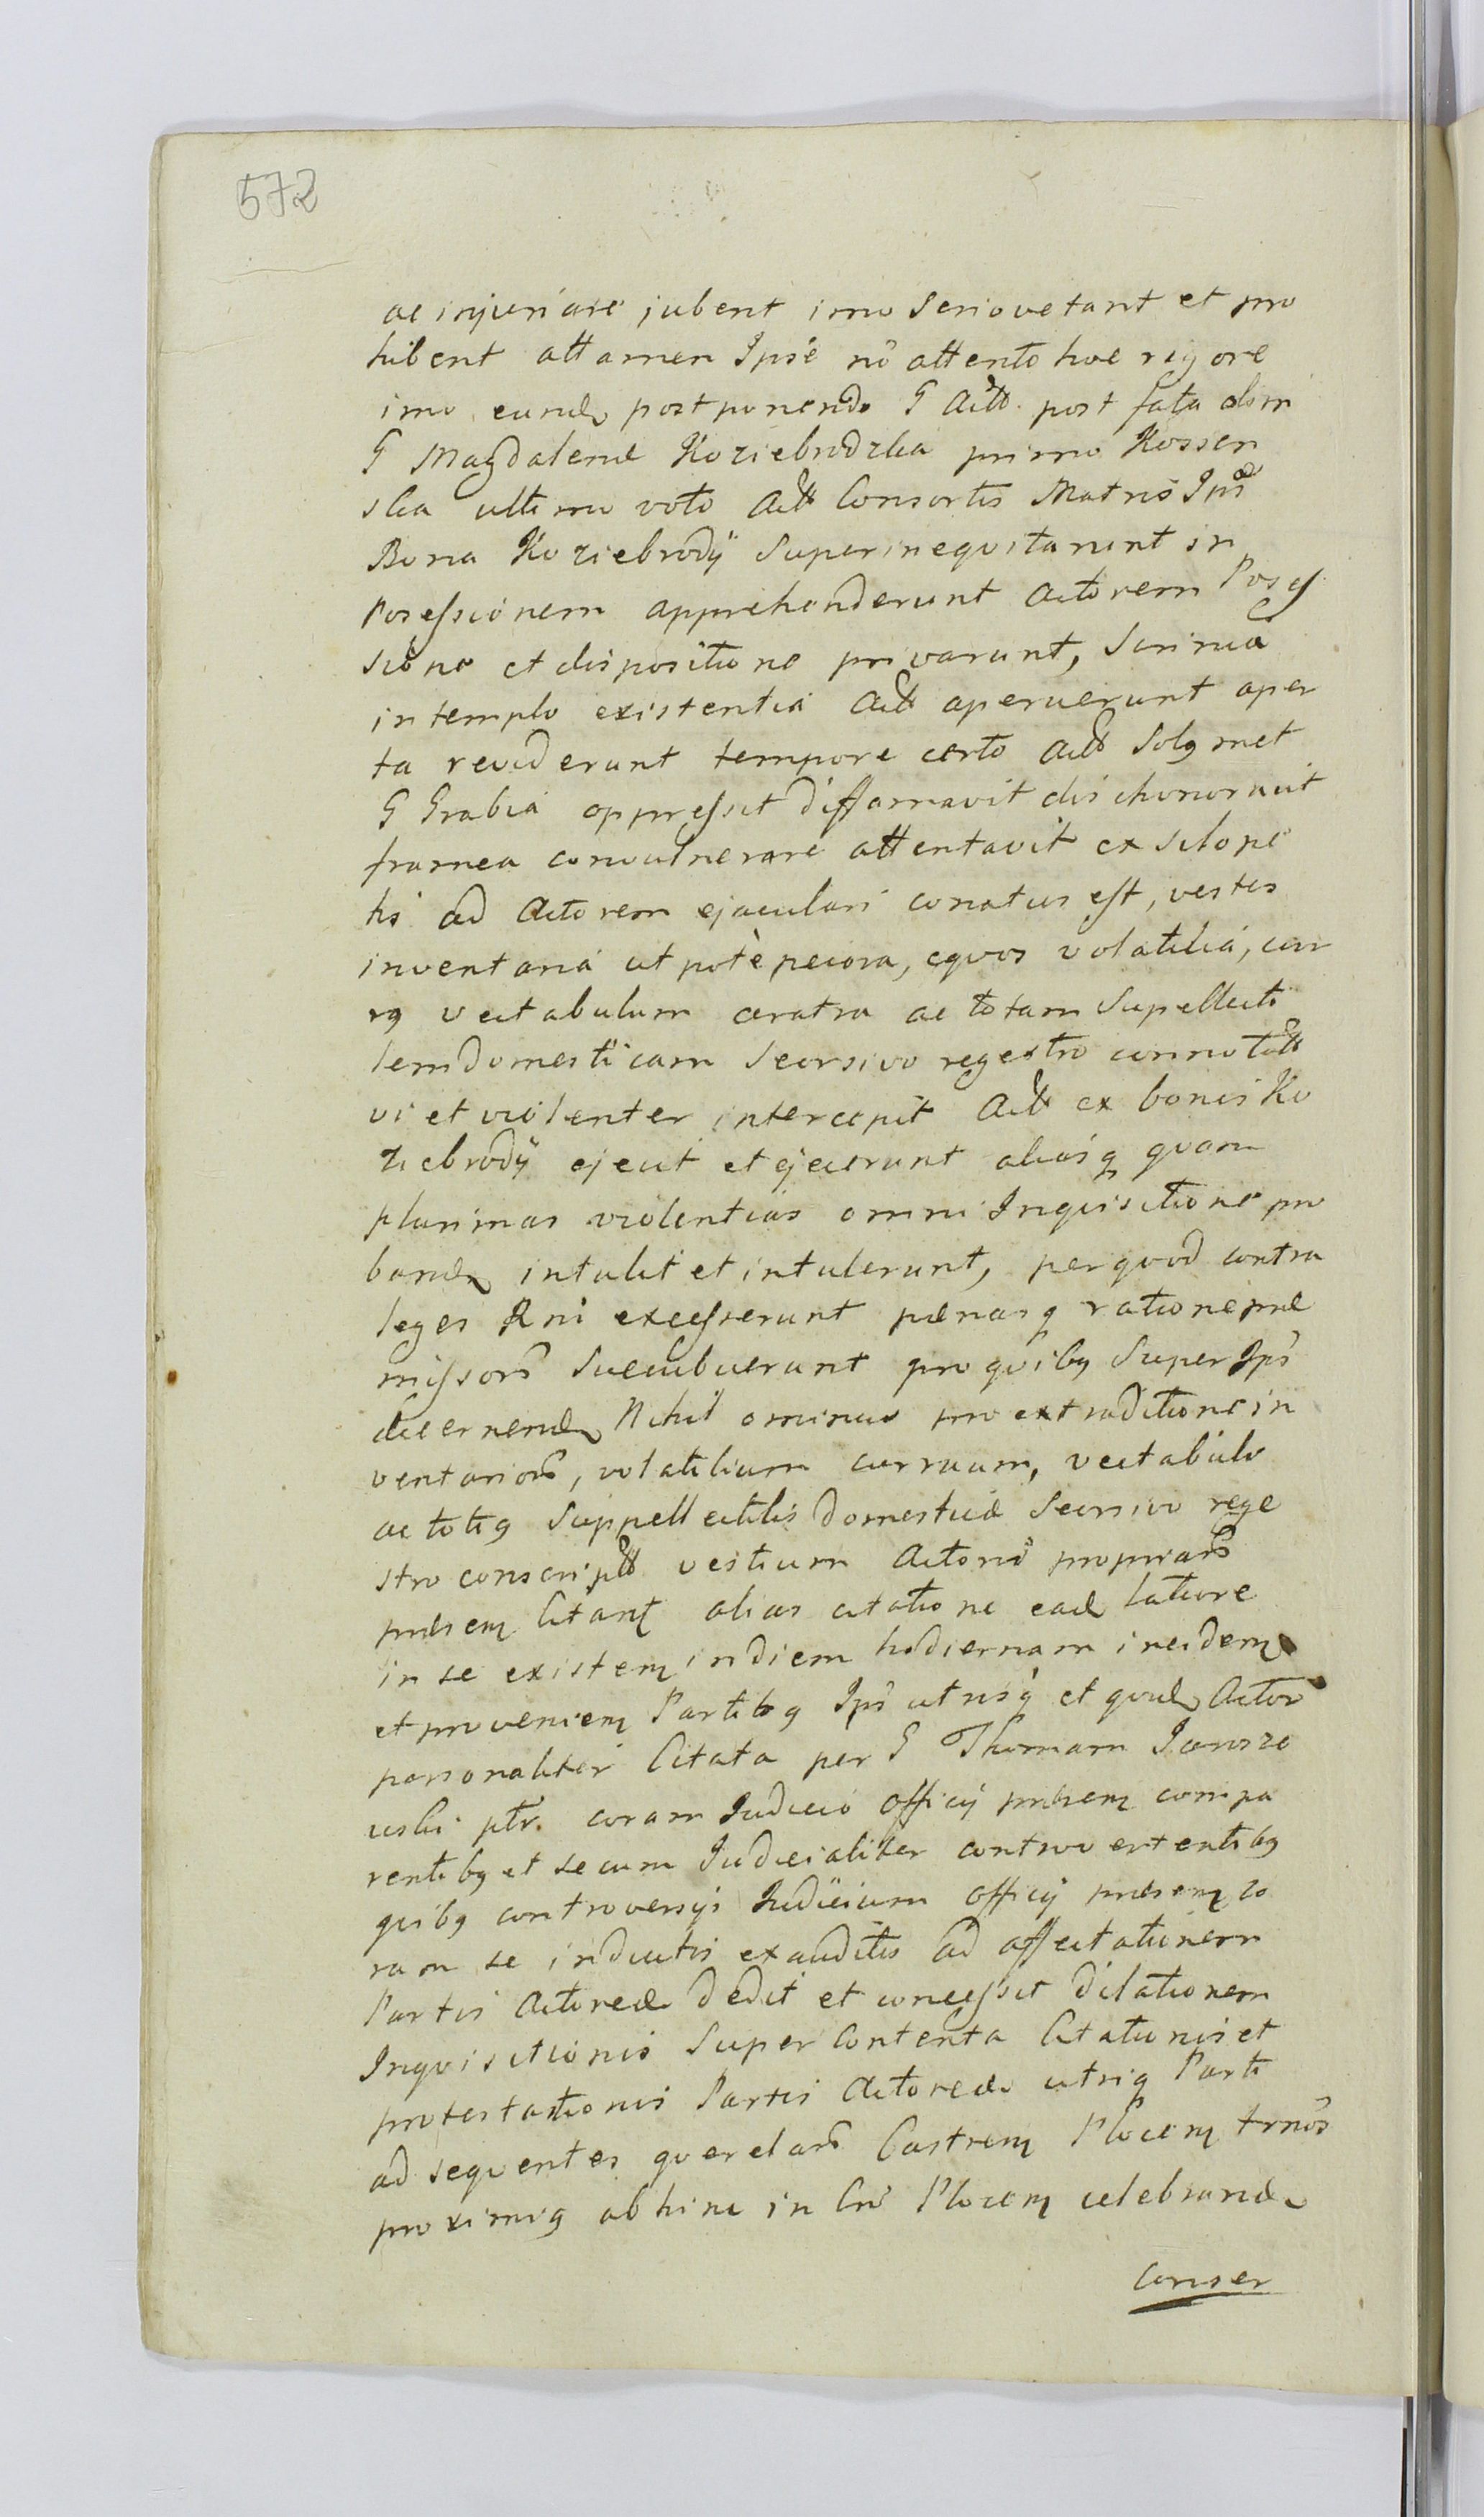 572
ac injuriare jubent imo serio vetant et pro
hibent attamen Ipsi nō attento hoc rigore
imo eund postponendo G Actt. post fata olim
G Magdalenæ Koziebrodzka primo Kossen
ska ultimo voto Act Consortis Matris Ips
Bona Koziebrody superinequitarunt in
Possessionem apprehenderunt Actorem Posses
sione et dispositione privarunt, scrinia
in templo existentia Act aperuerunt aper
ta reviderunt tempore certo Act solg met
G Grabia oppressit diffamavit dischonoravit
framea convulnerare attentavit ex sclope
tis ad Actorem ejaculari conatus est, vestes
inventaria utpotè pecora, equos volatilia, cur
rg vectabulum aratra ac totam supellecti
lem domesticam seorsivo regestro connotatt
vi et violenter intercepit Act ex bonis Ko
ziebrody ejecit et ejecerunt aliasq quam
plurimas violentias omni Inquisitione pro
band intulit et intulerunt, per quod contra
leges Rni excesserunt pænasq ratione præ
missorō succubuerunt pro quibg super Ips
decernend Nihil ominus pro extraditione in
ventariorō, volatilium curruum, vectabulo
ac totig suppellectilis domesticæ seorsivo rege
stro conscriptt vestium Actoris propriarō
præsem Citant alias citatione ead latiore
in se existem in diem hodiernam incidem
et proveniem Partibg Ips utrisq et quid Actor
personaliter Citata per G Thomam Jarosze
wski ptr. coram Judicio officij præsem compa
rentibg et secum Judicialiter controvertentibg
quibg controversijs Judicium officij præsem co
ram se inductis exauditis ad affectationem
Partis Actoreæ dedit et concessit dilationem
Inquisitionis super Contenta Citationis et
protestationis Partis Actoreæ utrig Parti
ad sequentes querelarō Castrem Plocem trnos
proximig ab hinc in Crō Plocem celebrand
Conser